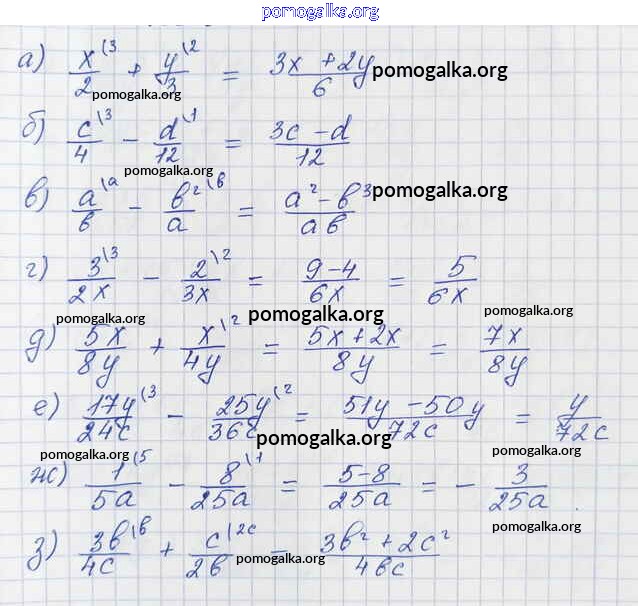 pomogalka.org
а) x/2 \3 + y/3 \2 = (3x + 2y)/6 pomogalka.org
pomogalka.org
б) c/4 \3 − d/12 \1 = (3c − d)/12
pomogalka.org
в) a/в \a − в²/a \в = (a² − в³)/aв pomogalka.org
г) 3/2x \3 − 2/3x \2 = (9−4)/6x = 5/6x
pomogalka.org pomogalka.org pomogalka.org
д) 5x/8y + x/4y \2 = (5x + 2x)/8y = 7x/8y
е) 17y/24c \3 − 25y/36c \2 = (51y − 50y)/72c = y/72c
pomogalka.org
ж) 1/5a \5 − 8/25a \1 = (5−8)/25a = − 3/25a .
pomogalka.org
з) 3в/4c \в + c/2в \2c = (3в² + 2c²)/4вc
pomogalka.org